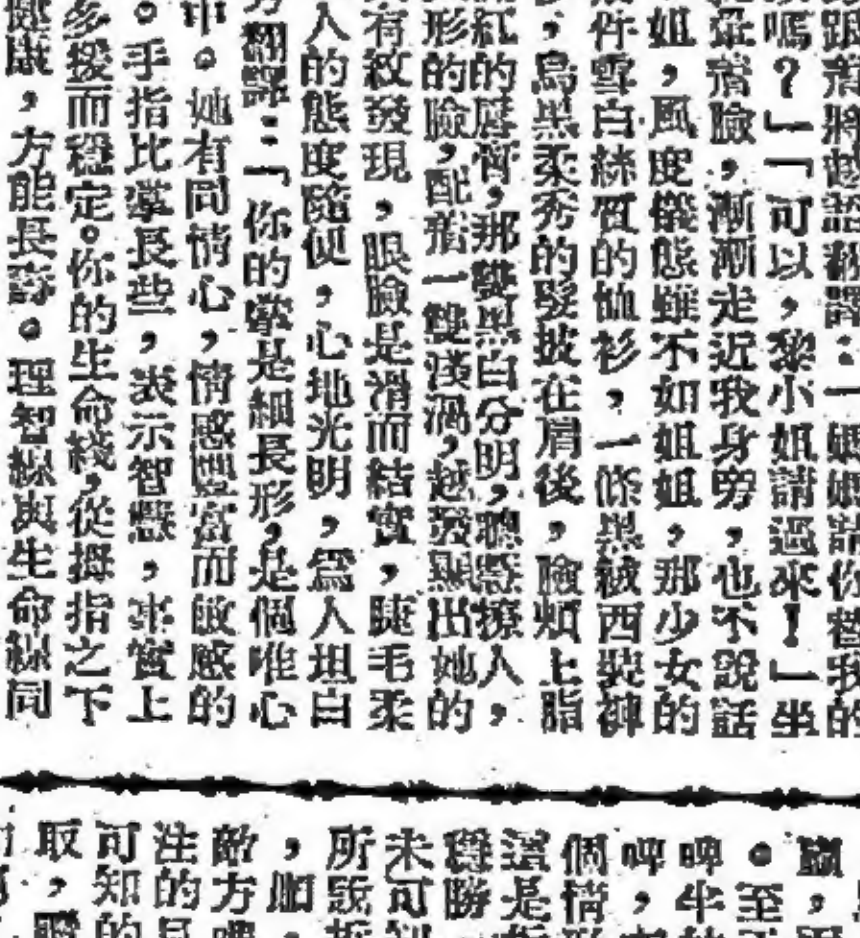 跟着將越語翻譯：「媽媽請你替我的
嗎？」「可以，黎小姐請過來！」坐
着臉，漸漸走近我身旁，也不說話
姐，風度儀態雖不如姐姐，那少女的
件雪白絲質的恤衫，一條黑被西裝褲
，烏黑柔秀的髮披在肩後，臉頰上脂
紅的唇膏，那雙黑白分明，聰慧撩人，
形的臉，配着一雙淺渦，越發顯出她的
有紋發現，眼瞼是滑而結實，睫毛柔
人的態度隨便，心地光明，為人坦白
翻譯：「你的掌是細長形，是個唯心
中。她有同情心，情感豐富而敏感的
。手指比掌長些，表示智慧，事實上
多援而穩定。你的生命綫，從拇指之下
健康，方能長壽。理智線與生命線同
巔，
。至
啤牛
啤，
個情
還是
穩勝
未可
所
，
敵方
注的
可知的
取，